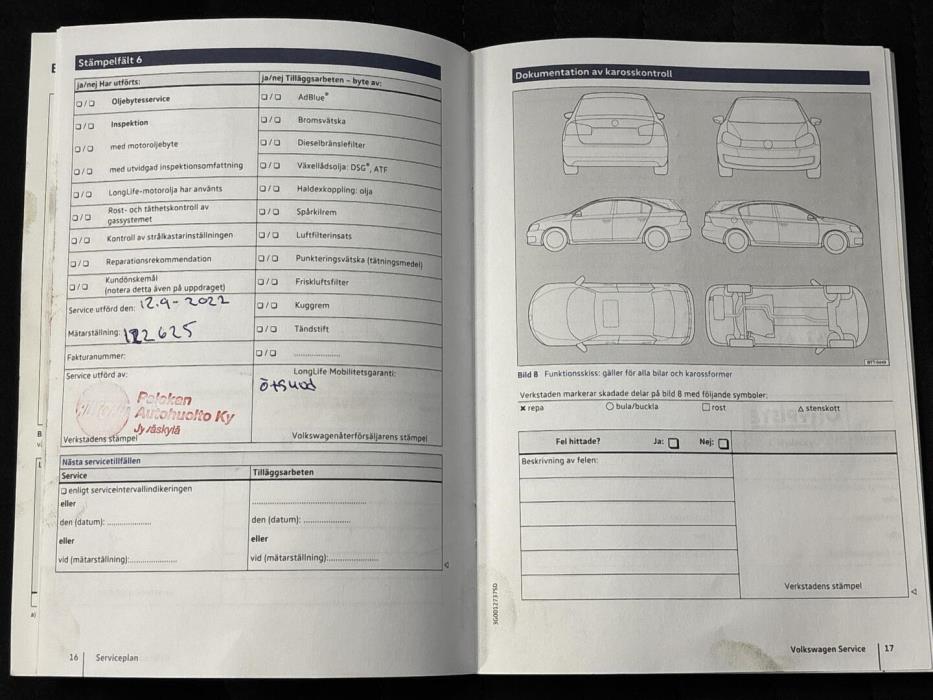 Stämpelfält 6
ja/nej Har utförts:
☐/☐ Oljebytesservice
☐/☐ Inspektion
☐/☐ med motoroljebyte
☐/☐ med utvidgad inspektionsomfattning
☐/☐ LongLife-motorolja har använts
☐/☐ Rost- och täthetskontroll av
gassystemet
☐/☐ Kontroll av strålkastarinställningen
☐/☐ Reparationsrekommendation
☐/☐ Kundönskemål
(notera detta även på uppdraget)
Service utförd den: 12.9-2022
Mätarställning: 122625
Fakturanummer:
Service utförd av:
Palokan
Autohuolto Ky
Jyväskylä
Verkstadens stämpel
ja/nej Tilläggsarbeten – byte av:
☐/☐ AdBlue®
☐/☐ Bromsvätska
☐/☐ Dieselbränslefilter
☐/☐ Växellådsolja: DSG®, ATF
☐/☐ Haldexkoppling: olja
☐/☐ Spårkilrem
☐/☐ Luftfilterinsats
☐/☐ Punkteringsvätska (tätningsmedel)
☐/☐ Friskluftsfilter
☐/☐ Kuggrem
☐/☐ Tändstift
☐/☐ ....................
LongLife Mobilitetsgaranti:
Volkswagenåterförsäljarens stämpel
Nästa servicetillfällen
Service
☐ enligt serviceintervallindikeringen
eller
den (datum): ..................
eller
vid (mätarställning):..................
Tilläggsarbeten
..............................................
den (datum): ....................
eller
vid (mätarställning):....................
16 Serviceplan
Dokumentation av karosskontroll
Bild 8 Funktionsskiss: gäller för alla bilar och karossformer
Verkstaden markerar skadade delar på bild 8 med följande symboler:
✖ repa ○ bula/buckla ☐ rost △ stenskott
Fel hittade? Ja: ☐ Nej: ☐
Beskrivning av felen:
Verkstadens stämpel
3G0012737SD
Volkswagen Service 17